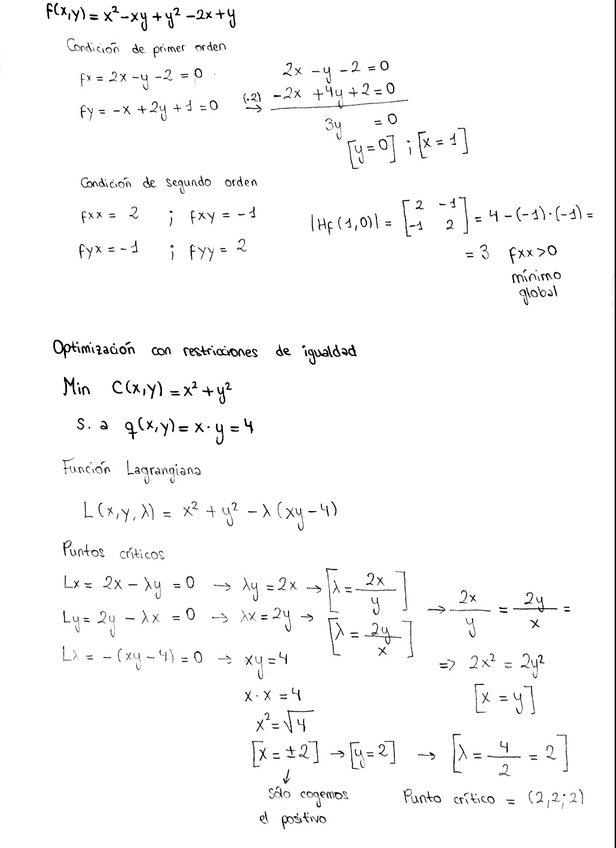 f(x,y) = x² - xy + y² - 2x + y
Condición de primer orden
fx = 2x - y - 2 = 0
fy = -x + 2y + 1 = 0 (·2) →
2x - y - 2 = 0
-2x + 4y + 2 = 0
3y = 0
[y=0] ; [x=1]
Condición de segundo orden
fxx = 2 ; fxy = -1
fyx = -1 ; fyy = 2
|Hf(1,0)| = [2 -1
-1 2] = 4 - (-1)·(-1) =
= 3 fxx > 0
mínimo
global
Optimización con restricciones de igualdad
Min C(x,y) = x² + y²
s. a q(x,y) = x · y = 4
Función Lagrangiana
L(x,y,λ) = x² + y² - λ(xy-4)
Puntos críticos
Lx = 2x - λy = 0 → λy = 2x → [λ = 2x/y]
Ly = 2y - λx = 0 → λx = 2y → [λ = 2y/x]
→ 2x/y = 2y/x =
Lλ = -(xy-4) = 0 → xy = 4
=> 2x² = 2y²
[x = y]
x · x = 4
x² = √4
[x = ±2] → [y=2] → [λ = 4/2 = 2]
↓
sólo cogemos
el positivo
Punto crítico = (2,2;2)